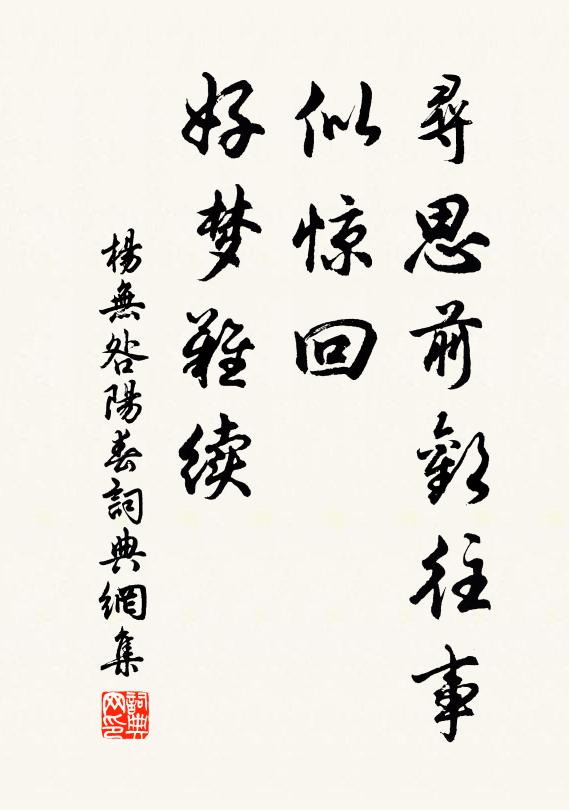 尋思前歡往事
似惊回
好梦難续
楊無咎陽春詞典網集
詞典网印